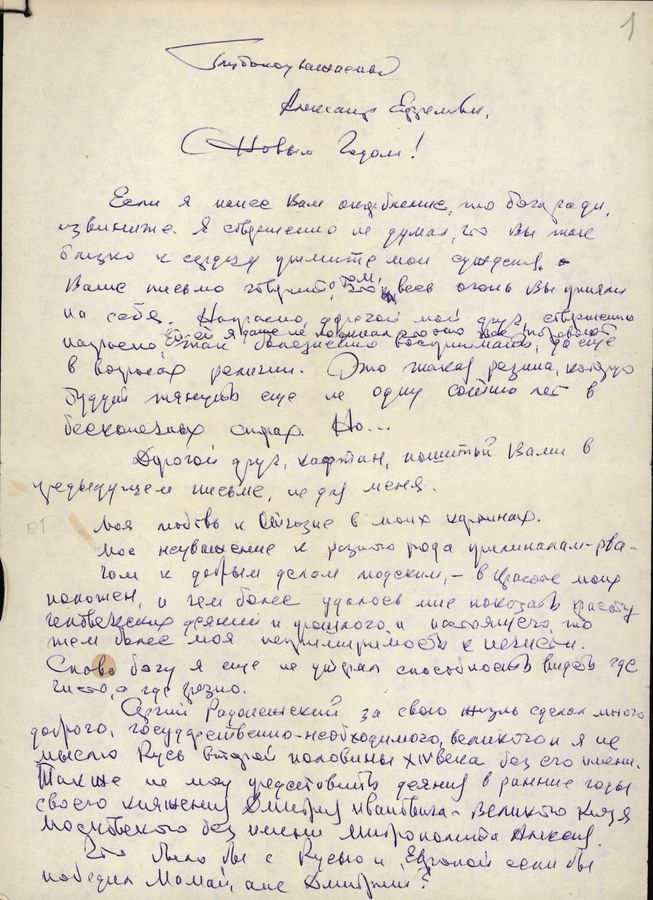 1
Глубокоуважаемый
Александр
С Новым Годом!
Если я нанес Вам оскорбление, то бога ради,
извините. Я совершенно не думал, что Вы так
близко к сердцу примите мои суждения.
Ваше письмо говорит о том, что весь огонь Вы приняли
на себя. Напрасно, дорогой мой друг, совершенно
Ей ей я даже не
напрасно, так болезненно воспринимать, да еще
в вопросах религии. Это такая резина, которую
будут тянуть еще не одну сотню лет в
бесконечных спорах. Но...
Дорогой друг, кафтан, пошитый Вами в
предыдущем письме, не для меня.
от
Моя любовь к Отчизне в моих картинах.
Мое неуважение к разного рода прилипалам-рва-
чам к добрым делам людским, – в красоте моих
полотен, и чем более удалось мне показать красоту
человеческих деяний и прошлого и настоящего, то
тем более моя непримиримость к нечисти.
Слава богу я еще не утерял способность видеть где
чисто, а где грязно.
Сергий Радонежский за свою жизнь сделал много
доброго, государственно-необходимого, великого и я не
мыслю Русь второй половины XIV века без его имени.
Также не могу представить деяния в ранние годы
своего княжения Дмитрия Ивановича – Великого Князя
Московского без имени митрополита Алексия.
Что было бы с Русью и Европой если бы
победил Мамай, а не Дмитрий?